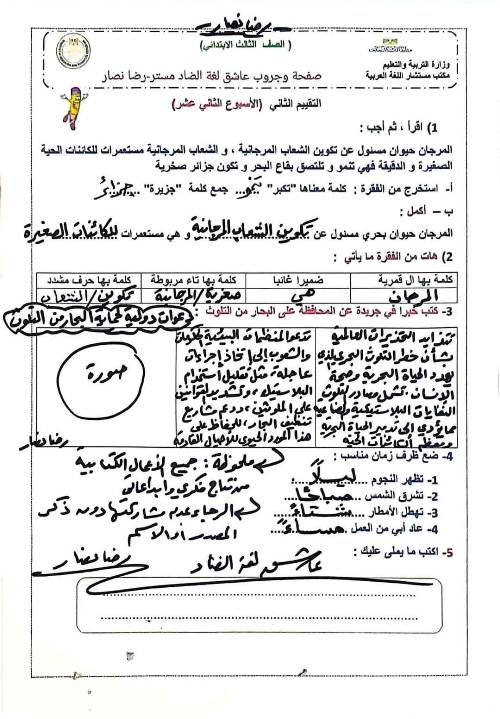 رضا نصار
وزارة التربية والتعليم
مكتب مستشار اللغة العربية
( الصف الثالث الابتدائي )
صفحة وجروب عاشق لغة الضاد مستر-رضا نصار
التقييم الثاني (الأسبوع الثاني عشر)
1) اقرأ ، ثم أجب :
المرجان حيوان مسئول عن تكوين الشعاب المرجانية ، و الشعاب المرجانية مستعمرات للكائنات الحية
الصغيرة و الدقيقة فهي تنمو و تلتصق بقاع البحر و تكون جزائر صخرية
أ- استخرج من الفقرة : كلمة معناها "تكبر" تنمو جمع كلمة "جزيرة" جزائر
ب – أكمل :
المرجان حيوان بحري مسئول عن تكوين الشعاب المرجانية و هي مستعمرات للكائنات الصغيرة
2) هات من الفقرة ما يأتي :
كلمة بها ال قمرية | ضميرا غائبا | كلمة بها تاء مربوطة | كلمة بها حرف مشدد
المرجان | هي | صخرية/المرجانية | تكوين/الشعاب
3- كتب خبرا في جريدة عن المحافظة على البحار من التلوث :
دعوات دولية لحماية البحار من التلوث
تتزايد التحذيرات العالمية
بشأن خطر التلوث البحري الذي
يهدد الحياة البحرية وصحة
الإنسان، تشمل مصادر التلوث
النفايات البلاستيكية والصناعية
مما يؤدي إلى تدمير الحياة البحرية
الكائنات الحية
تدعو المنظمات البيئية الحكومات
والشعوب إلى اتخاذ إجراءات
عاجلة، مثل تقليل استخدام
البلاستيك، وتشديد القوانين
على الملوثين، ودعم مشاريع
تنظيف البحار، للحفاظ على
هذا المورد الحيوي للأجيال القادمة
صورة
رضا نصار
4- ضع ظرف زمان مناسب :
1- تظهر النجوم ليلًا
2- تشرق الشمس صباحًا
3- تهطل الأمطار شتاءً
4- عاد أبي من العمل مساءً
ملحوظة : جميع الأعمال الكتابية
من نتاج فكري وإبداعاتي
الرجاء عدم مشاركتها دون ذكر
المصدر أو الاسم
5- اكتب ما يملى عليك :
عاشق لغة الضاد
رضا نصار